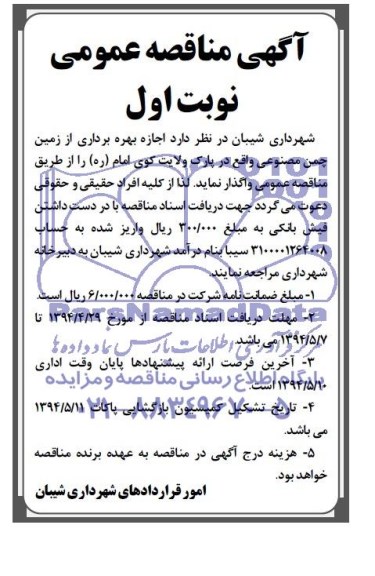 آگهی مناقصه عمومی
نوبت اول
شهرداری شیبان در نظر دارد اجازه بهره برداری از زمین
چمن مصنوعی واقع در پارک ولایت کوی امام (ره) را از طریق
مناقصه عمومی واگذار نماید. لذا از کلیه افراد حقیقی و حقوقی
دعوت می گردد جهت دریافت اسناد مناقصه با در دست داشتن
فیش بانکی به مبلغ ۳۰۰/۰۰۰ ریال واریز شده به حساب
۳۱۰۰۰۰۱۲۶۴۰۰۸ سیبا بنام درآمد شهرداری شیبان به دبیرخانه
شهرداری مراجعه نمایند.
۱- مبلغ ضمانت نامه شرکت در مناقصه ۶/۰۰۰/۰۰۰ ریال است.
۲- مهلت دریافت اسناد مناقصه از مورخ ۱۳۹۴/۴/۲۹ تا
۱۳۹۴/۵/۷ می باشد.
۳- آخرین فرصت ارائه پیشنهادها پایان وقت اداری
۱۳۹۴/۵/۱۰ است.
۴- تاریخ تشکیل کمیسیون بازگشایی پاکات ۱۳۹۴/۵/۱۱
می باشد.
۵- هزینه درج آگهی در مناقصه به عهده برنده مناقصه
خواهد بود.
امور قراردادهای شهرداری شیبان
ParsNamadData
مرکز فرآوری اطلاعات پارس نماد داده ها
پایگاه اطلاع رسانی مناقصه و مزایده
۰۲۱-۸۸۳۴۹۶۷۰-۵